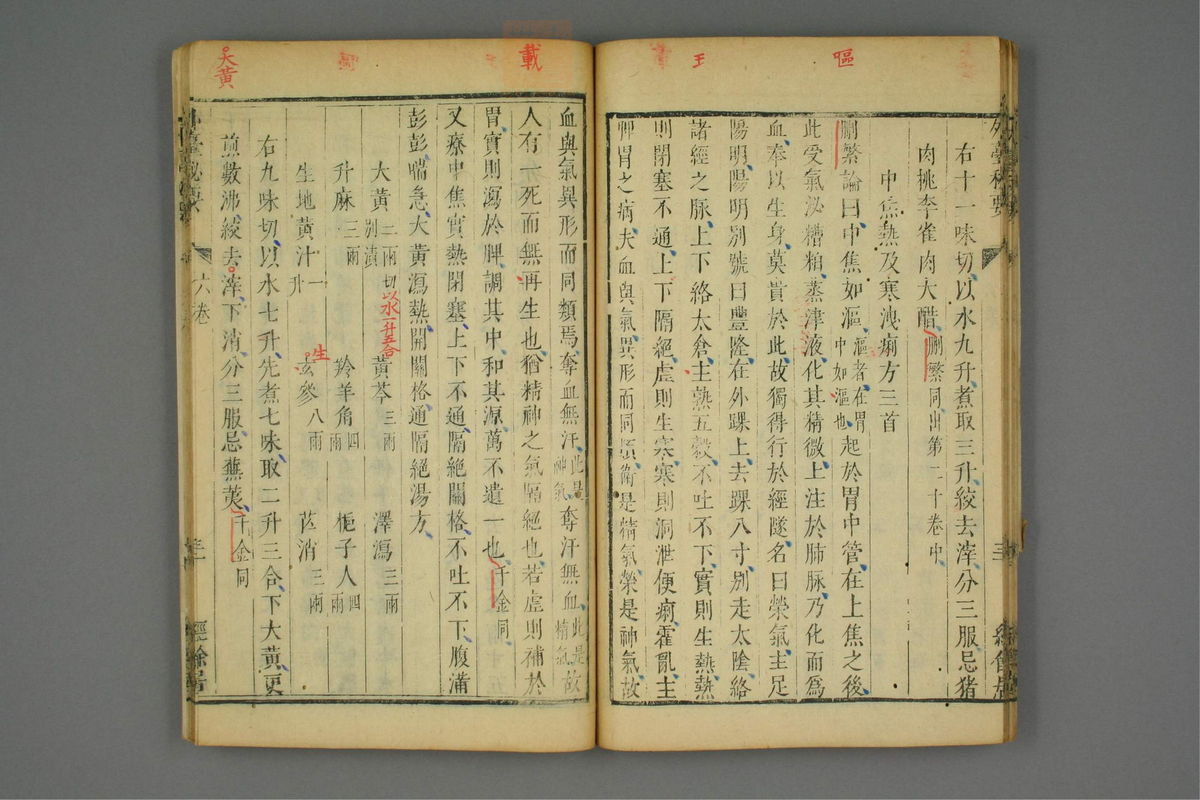 嘔
王
外臺秘要
右十一味切以水九升煮取三升絞去滓分三服忌猪
肉桃李雀肉大醋刪繁同出第二十卷中
中焦熱及寒洩痢方三首
刪繁論曰中焦如漚漚者在胃中如漚也起於胃中管在上焦之後
此受氣泌糟粕蒸津液化其精微上注於肺脉乃化而爲
血奉以生身莫貴於此故獨得行於經隧名曰榮氣主足
陽明陽明别號曰豐隆在外踝上去踝八寸别走太陰絡
諸經之脉上下絡太倉主熟五穀不吐不下實則生熱熱
則閉塞不通上下隔絕虛則生寒寒則洞泄便痢霍亂主
脾胃之病夫血與氣異形而同類衛是精氣榮是神氣故
經餘居
載
大黃
血與氣異形而同類焉奪血無汗此是神氣奪汗無血此是精氣故
人有一死而無再生也猶精神之氣隔絕也若虛則補於
胃實則瀉於脾調其中和其源萬不遺一也千金同
又療中焦實熱閉塞上下不通隔絕關格不吐不下腹滿
彭彭喘急大黃瀉熱開關格通隔絕湯方
大黃二兩切别漬以水一升五合 黃芩三兩 澤瀉三兩
升麻三兩 羚羊角四兩 梔子人四兩
生地黃汁一升 生玄參八兩 芒消三兩
右九味切以水七升先煮七味取二升三合下大黃更
煎數沸絞去滓下消分三服忌蕪荑千金同
外臺秘要
六卷
經餘居